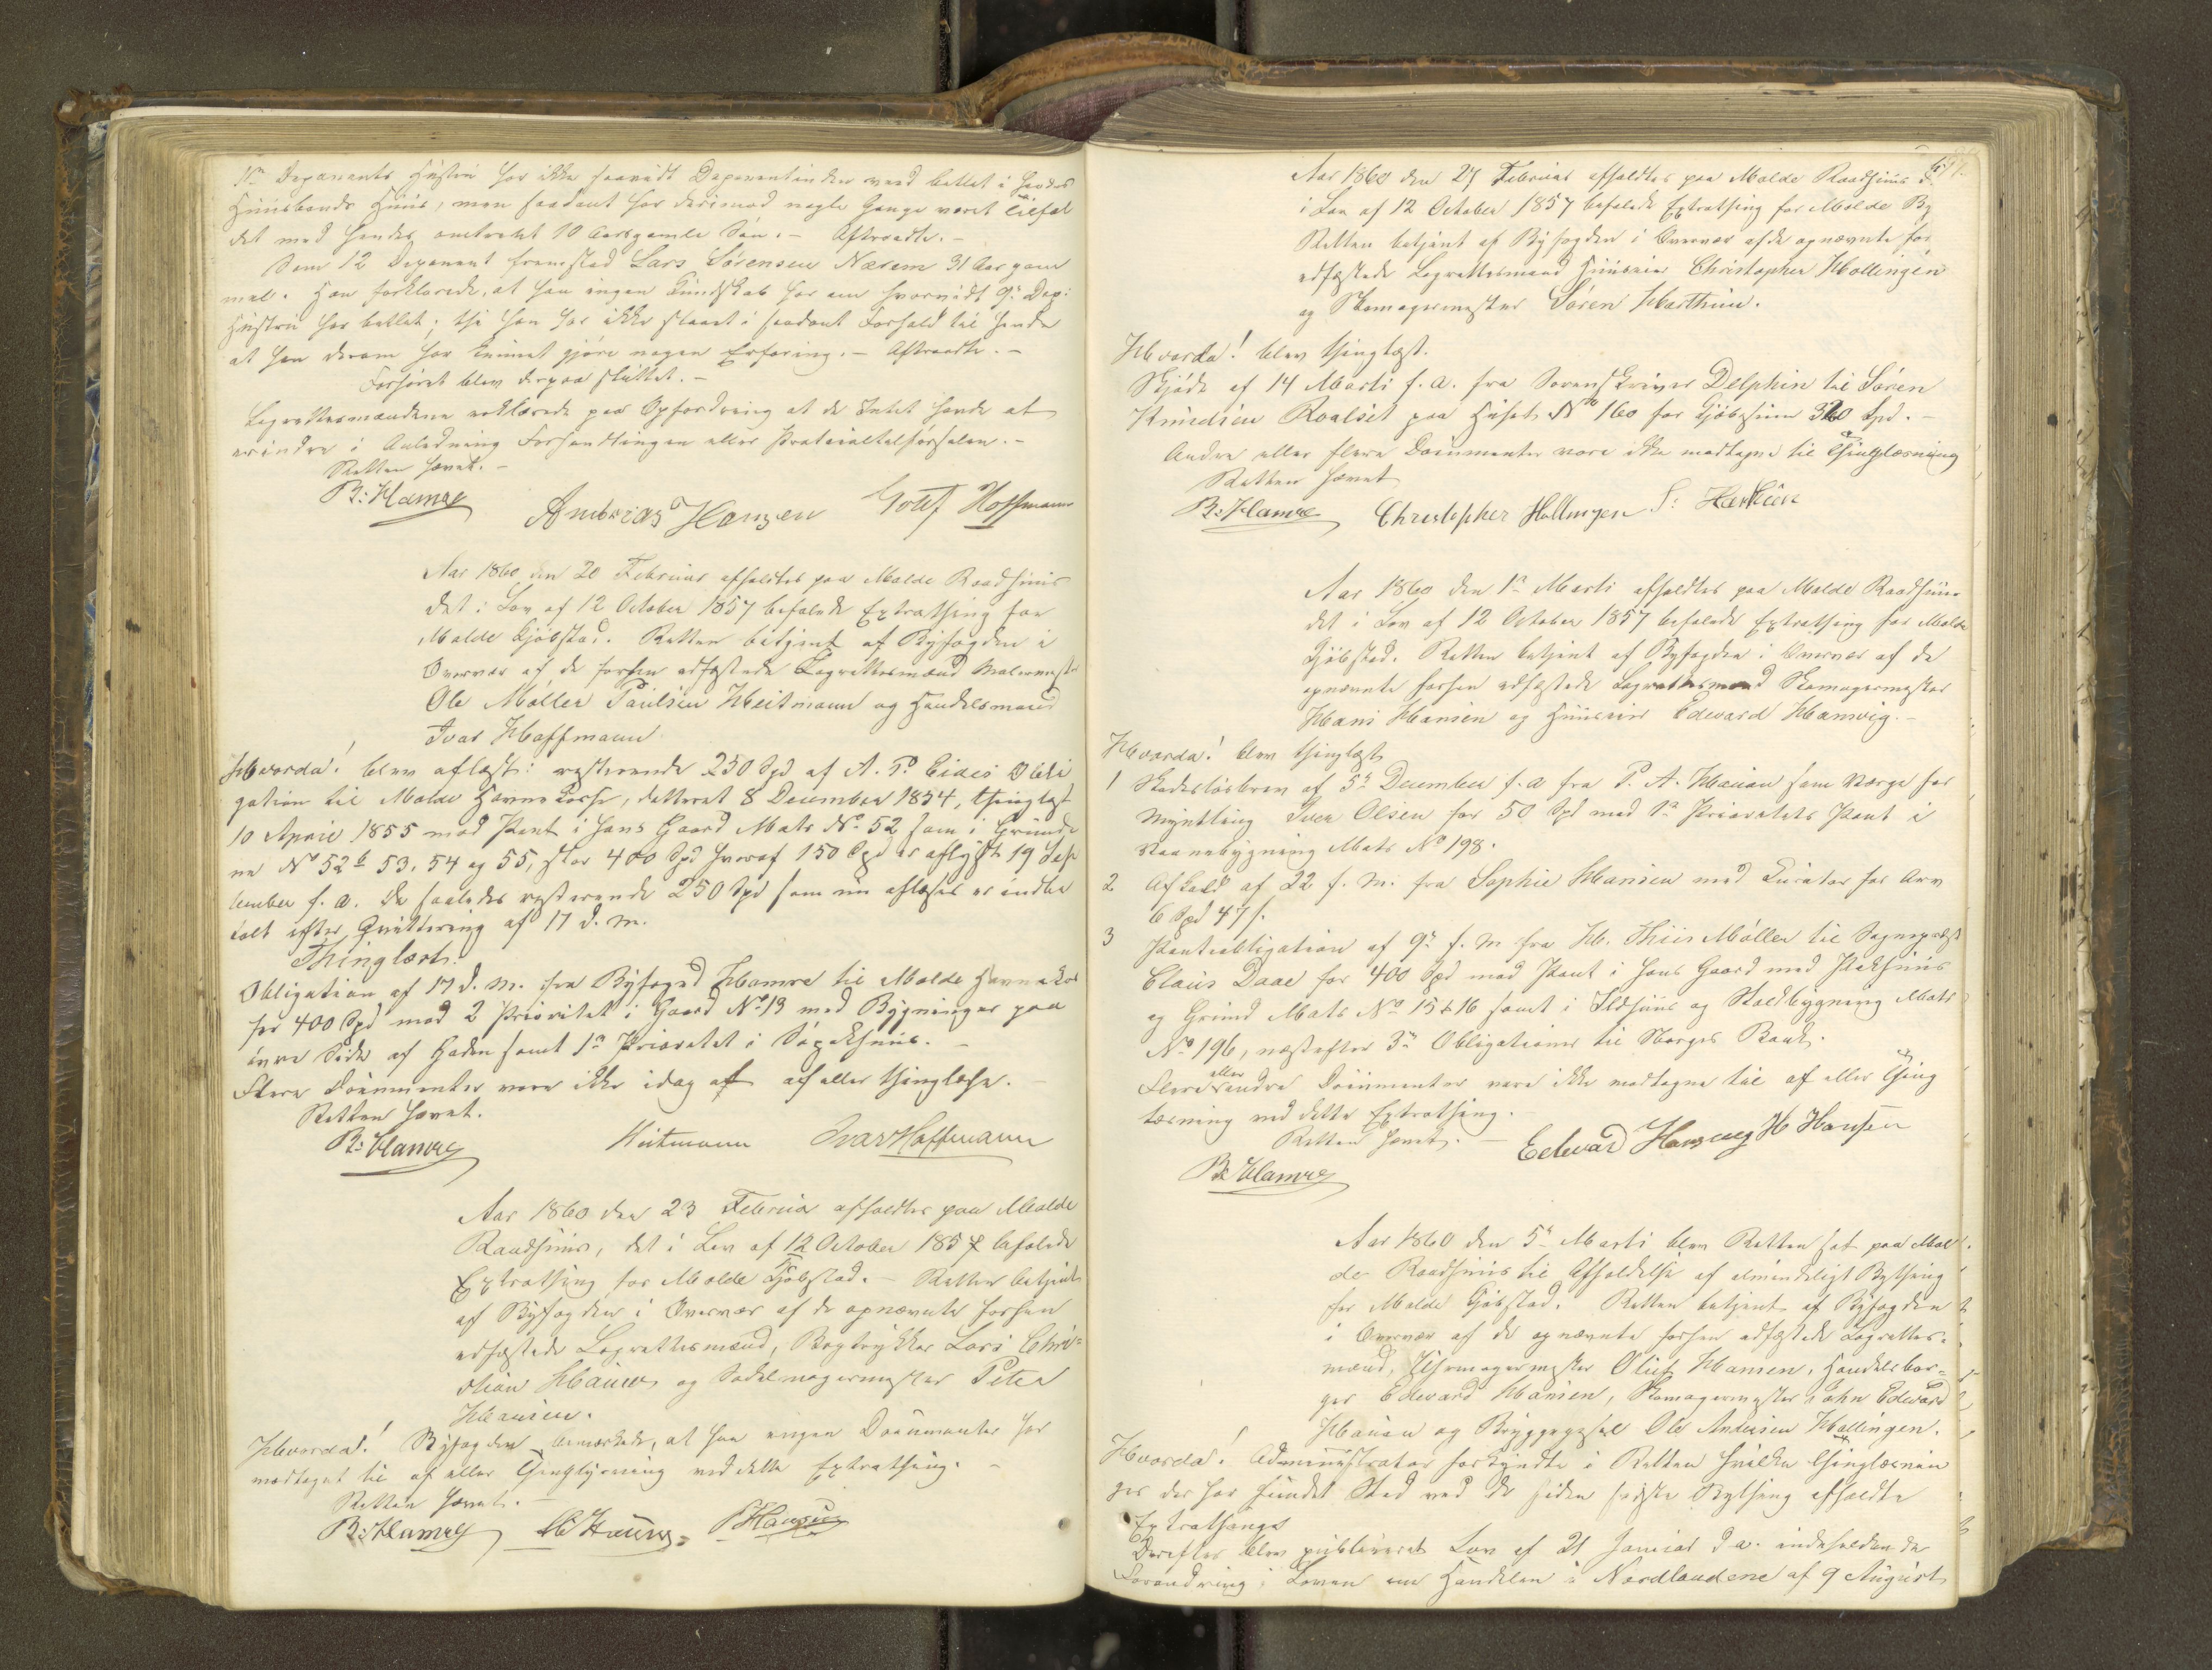 1ste Deponents Hustru har ikke saavidt Deponentinden veed betlet i hendes
Huusbonds Huus, men saadant har derimod nogle Gange været Tilfæl
det med hendes omtrent 10 Aar gamle Søn. - Aftraadte. -
Som 12 Deponent fremstod Lars Sørensen Nærem 31 Aar gam
mel. Han forklarede, at han ingen Kundskab har om hvorvidt 9de Dep:
Hustru har betlet; thi han har ikke staaet i saadant Forhold til hende
at han derom har kunnet gjøre nogen Erfaring. - Aftraadte. -
Forhøret blev derpaa sluttet. -
Lagrettesmændene erklærede paa Opfordring at de Intet havde at
erindre i Anledning Forhandlingen eller Protocoltilførselen. -
Retten hævet. -
B: Hamre Andreas Hansen Hoffmann
Aar 1860 den 20 Februar afholdtes paa Molde Raadhuus
det i Lov af 12 October 1857 befalede Extrathing for
Molde Kjøbstad. Retten betjent af Byfogden i
Overvær af de forhen edfæstede Lagrettesmænd Malermester
Ole Møller Paulsen Heitmann og Handelsmand
Ivar Hoffmann
Hvorda! blev aflæst: resterende 250 Spd af A. P. Eides Obli
gation til Molde Havne Kasse, datteret 8 December 1854, thinglæst
10 April 1855 med Pant i hans Gaard Matr No 52 sam i Grunde
ne No 52b 53, 54 og 55, stor 400 Spd hvoraf 150 Spd er aflyst 19 Sep
tember f. a. De saaledes resterende 250 Spd som nu aflæses er indbe
talt efter Qvittering af 17 d. M.
Thinglæst.
Obligation af 17 d. M. fra Byfoged Hamre til Molde Havnekasse
for 400 Spd med 2 Prioritet i Gaard No 13 med Bygninger paa
øvre Side af Gaden samt 1ste Prioritet i Søpakhuus. -
Flere Documenter vare ikke idag at af eller thinglæse. -
Retten hævet.
B: Hamre Heitmann Ivar Hoffmann
Aar 1860 den 23 Februar afholdtes paa Molde
Raadhuus, det i Lov af 12 October 1857 befalede
Extrathing for Molde Kjøbstad. - Retten betjent
af Byfogden i Overvær af de opnævnte forhen
edfæstede Lagrettesmænd, Bogtrykker Lars Chri=
stian Hauw og Sadelmagermester Peter
Hansen.
Hvorda! Byfogden bemærkede, at han ingen Documenter har
modtaget til af eller Thinglysning ved dette Extrathing. -
Retten hævet. -
B: Hamre P Hansen
Aar 1860 den 27 Februar afholdtes paa Molde Raadhuus det
i Lov af 12 October 1857 befalede Extrathing for Molde By
Retten betjent af Byfogden i Overvær af de opnævnte for
edfæstede Lagrettesmænd Huuseier Christopher Hollingen
og Skomagermester Søren Harthun.
Hvorda! blev thinglæst.
Skjøde af 14 Marti f. a. fra Sorenskriver Delphin til Søren
Knudsen Roalset paa Huset No 160 for Kjøbesum 320 Spd. -
Andre eller flere Documenter vare ikke modtagne til Thinglæsning
Retten hævet
B: Hamre Christopher Hollingen S: Harthun
Aar 1860 den 1ste Marti afholdtes paa Molde Raadhuus
det i Lov af 12 October 1857 befalede Extrathing for Molde
Kjøbstad. Retten betjent af Byfogden i Overvær af de
opnævnte forhen edfæstede Lagrettesmænd Skomagermester
Hans Hansen og Huuseier Edward Hansvig. -
Hvorda! blev thinglæst
1 Skadesløsbrev af 5te December f. a fra P. A. Hansen som Værge for
Myndling Iver Olsen for 50 Spd med 1ste Prioritets Pant i
Vaanebygning Matr No 198.
2 Afkald af 22 f. M. fra Sophie Hansen med Curator for Arv
6 Spd 47 s.
3 Pantobligation af 9de f. M fra H. Thiis Møller til Sognepræst
Claus Daae for 400 Spd med Pant i hans Gaard med Pakhuus
og Grund Matr No 15 & 16 samt i Ildhuus og Staldbygning Matr
No 196, næstefter 3de Obligationer til Norges Bank.
Flere eller andre Documenter vare ikke modtagne til af eller Thing
læsning ved dette Extrathing.
Retten hævet. -
B: Hamre Edvard Hansvig H Hansen
Aar 1860 den 5te Marti blev Retten sat paa Mol
de Raadhuus til Afholdelse af almindeligt Bything
for Molde Kjøbstad. Retten betjent af Byfogden
i Overvær af de opnævnte forhen edfæstede Lagrettes=
mænd, Uhrmagermester Oluf Hansen, Handelsbor=
ger Edward Hansen, Skomagermester John Edward
Hansen og Bryggegesel Ole Andersen Hollingen.
Hvorda! Administrator forkyndte i Retten hvilke Thinglæsnin
ger der har fundet Sted ved de siden sidste Bything afholdte
Extrathinge
Derefter blev publiceret Lov af 21 Januar d. a. indeholdende
Forandring i Loven om Handelen i Nordlandene af 9 August